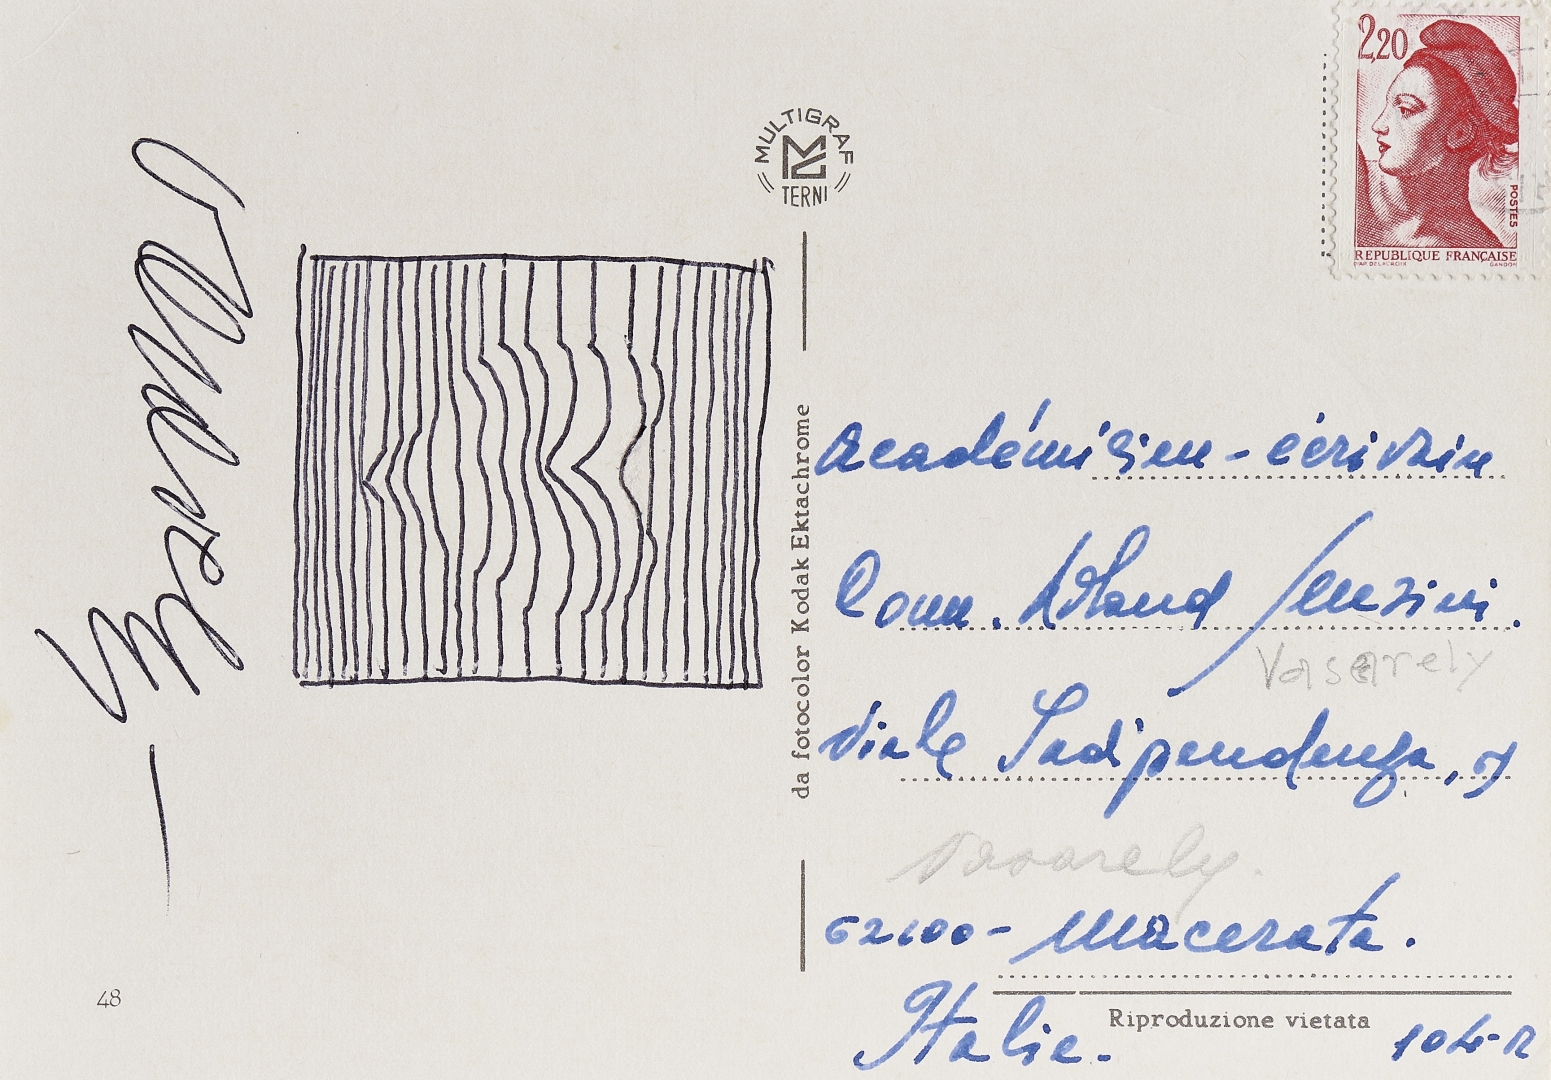 Vasarely
48
MULTIGRAF
TERNI
da fotocolor Kodak Ektachrome
2,20
POSTES
REPUBLIQUE FRANÇAISE
D'AP. DELACROIX GANDON
Académicien - écrivain
Comm.
Vasarely
Viale Indipendenza,
Vasarely.
62100 - Macerata.
Italie.
Riproduzione vietata